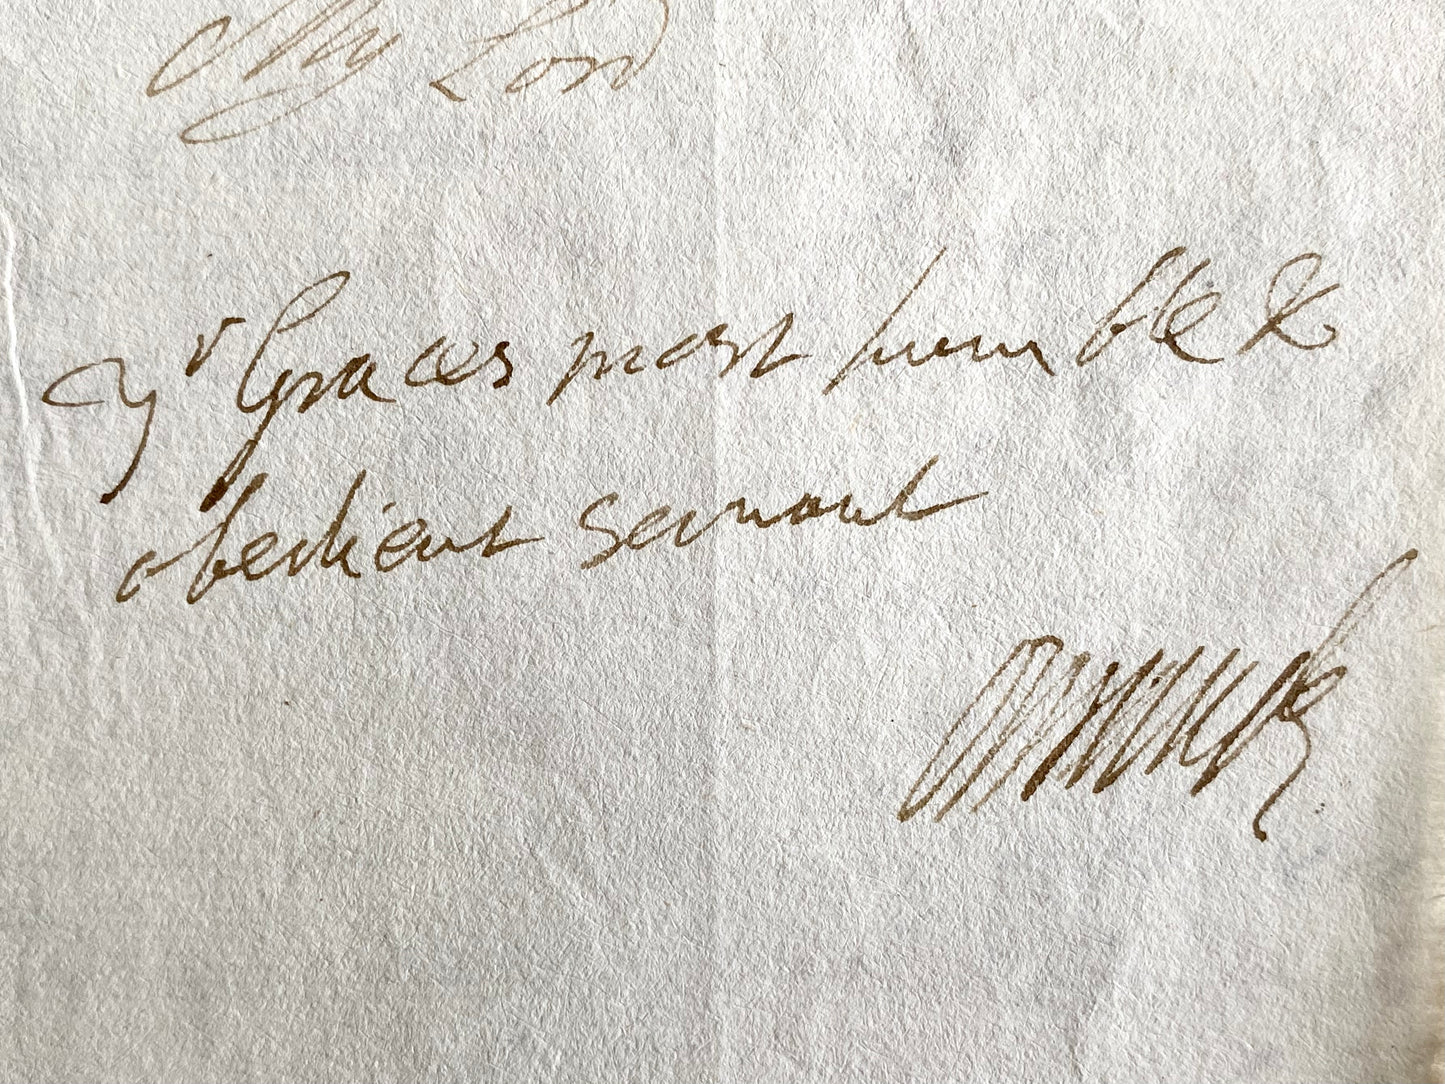 My Lord
yr Graces most humble &
obedient servant